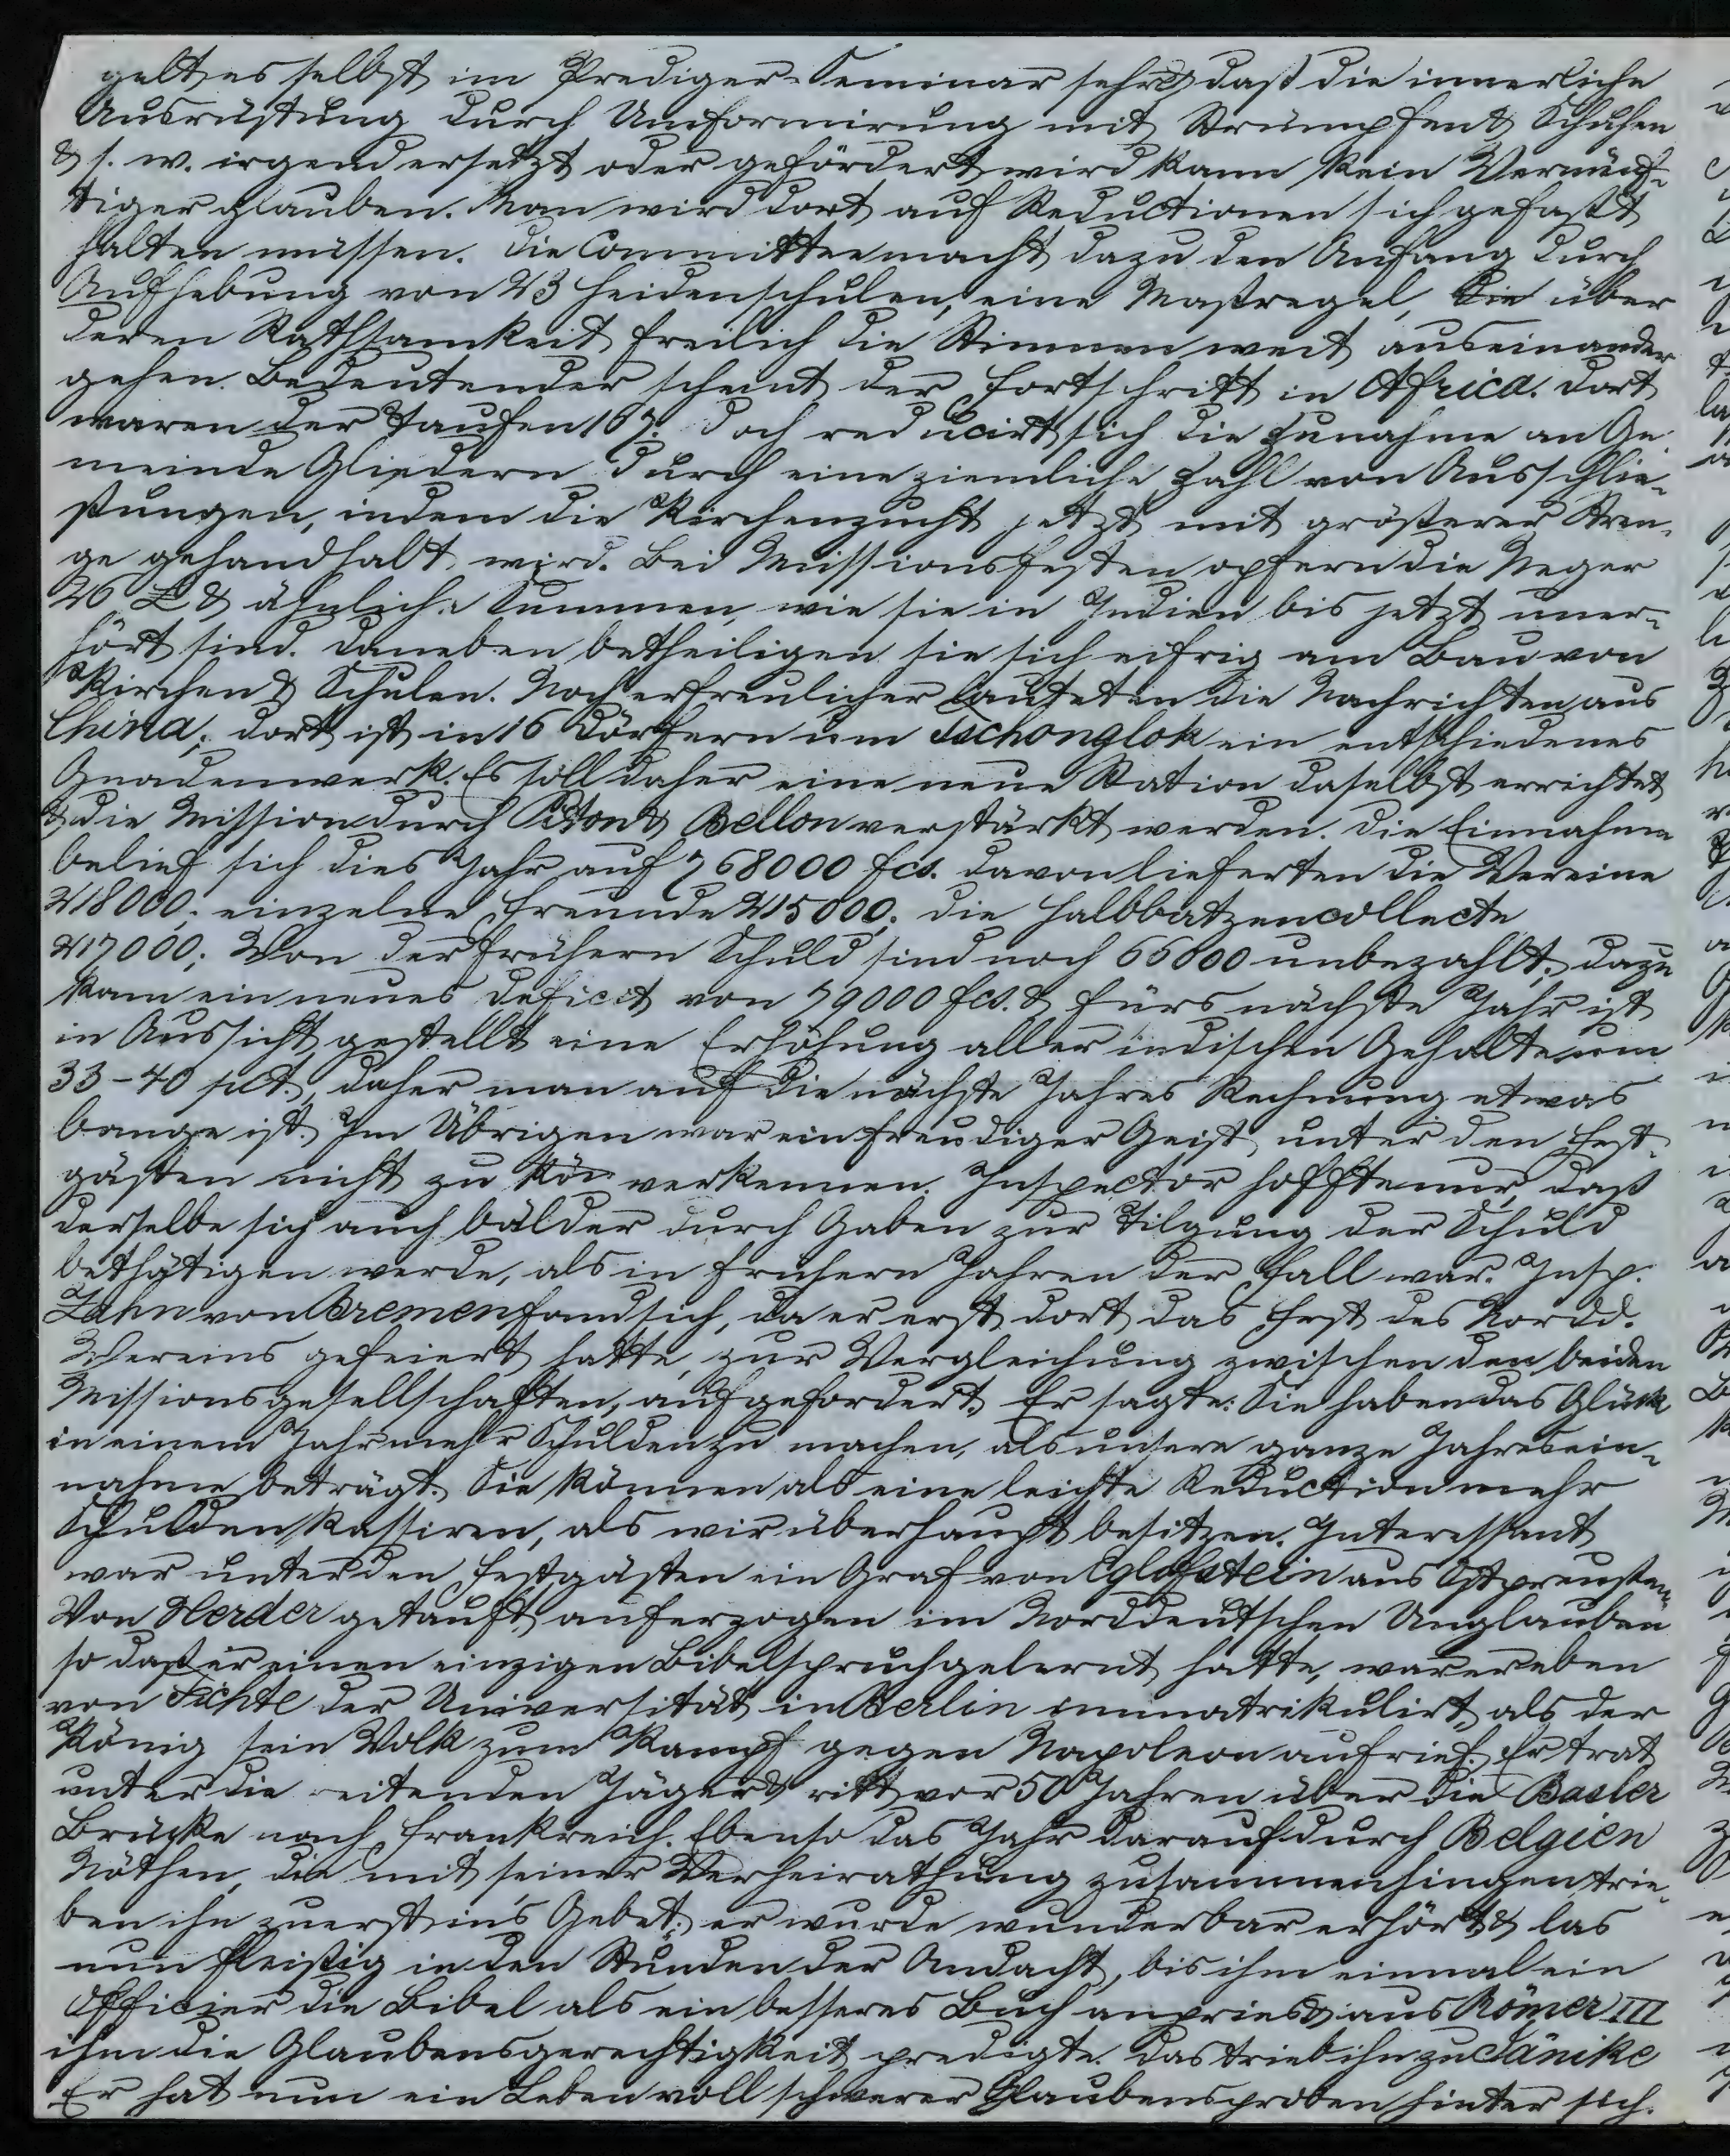 gelt es selbst im Prediger-Seminar sehr & daß die innerliche
Ausrüstung durch Uniformirung mit Strümpfen & Schuhen
& s. w. irgend ersetzt oder gefördert wird kann kein Vernünf-
tiger glauben. Man wird dort auf Reductionen sich gefaßt
halten müssen. Die Committee macht dazu den Anfang durch
Aufhebung von 23 Heidenschulen, eine Maßregel, die über
deren Rathsamkeit freilich die Stimmen weit auseinander
gehen. Bedeutender scheint der Fortschritt in Africa. Dort
waren der Taufen 107. Doch reducirt sich die Zunahme an Ge
meinde Gliedern durch eine ziemliche Zahl von Ausschlie-
ßungen, indem die Kirchenzucht jetzt mit größerer Stren-
ge gehandhabt wird. Bei Missionsfesten opfern die Neger
26 £ & ähnliche Summen, wie sie in Indien bis jetzt uner-
hört sind. Daneben betheiligen sie sich eifrig am Bau von
Kirchen & Schulen. Noch erfreulicher lauteten die Nachrichten aus
China; dort ist in 16 Dörfern um Tschonglok ein entschiedenes
Gnadenwerk. Es soll daher eine neue Station daselbst errichtet
& die Mission durch Piton & Bellon verstärkt werden. Die Einnahme
belief sich dies Jahr auf 768000 fcs. davon lieferten die Vereine
218000; einzelne Freunde 215000; die Halbbatzencollecte
217000; Von der frühern Schuld sind noch 66000 unbezahlt; dazu
kam ein neues Deficit von 79000 fcs. & fürs nächste Jahr ist
in Aussicht gestellt eine Erhöhung aller indischen Gehalte um
33-40 pct., daher man auf die nächste Jahres Rechnung etwas
bange ist. Im Übrigen war ein freudiger Geist unter den Fest-
gästen nicht zu verkennen. Inspector hoffte nur, daß
derselbe sich auch bälder durch Gaben zur Tilgung der Schuld
bethätigen werde, als in frühern Jahren der Fall war. Insp.
Zahn von Bremen fand sich, da er erst dort das Fest des Nordd.
Vereins gefeiert hatte, zur Vergleichung zwischen den beiden
Missionsgesellschaften, aufgefordert. Er sagte: Sie haben das Glück
in einem Jahr mehr Schulden zu machen, als unsere ganze Jahresein-
nahme beträgt. Sie können als eine leichte Reduction mehr
Schulden kassiren, als wir überhaupt besitzen. Interessant
war unter den Festgästen ein Graf von Eglofstein aus Ostpreußen.
Von Herder getauft, auferzogen im Norddeutschen Unglauben
so daß er einen einzigen Bibelspruch gelernt hatte, war er eben
von Fichte der Universität in Berlin immatrikulirt, als der
König sein Volk zum Kampf gegen Napoleon aufrief. Er trat
unter die reitenden Jäger & ritt vor 50 Jahren über die Basler
Brücke nach Frankreich. Ebenso das Jahr darauf durch Belgien
Nöthen, die mit seiner Verheirathung zusammenhingen, trie-
ben ihn zuerst in's Gebet; er wurde wunderbar erhört & las
nun fleißig in den Stunden der Andacht, bis ihm einmal ein
Officier die Bibel als ein besseres Buch anpries & aus Römer III
ihm die Glaubensgerechtigkeit predigte. Das trieb ihn zu Jänike
Er hat nun ein Leben voll schwerer Glaubensproben hinter sich.